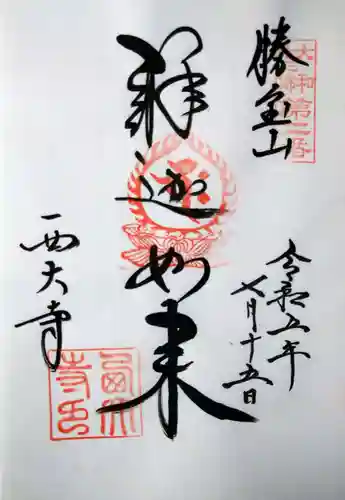 勝宝山
釋迦如来
西大寺
令和五年
七月十五日